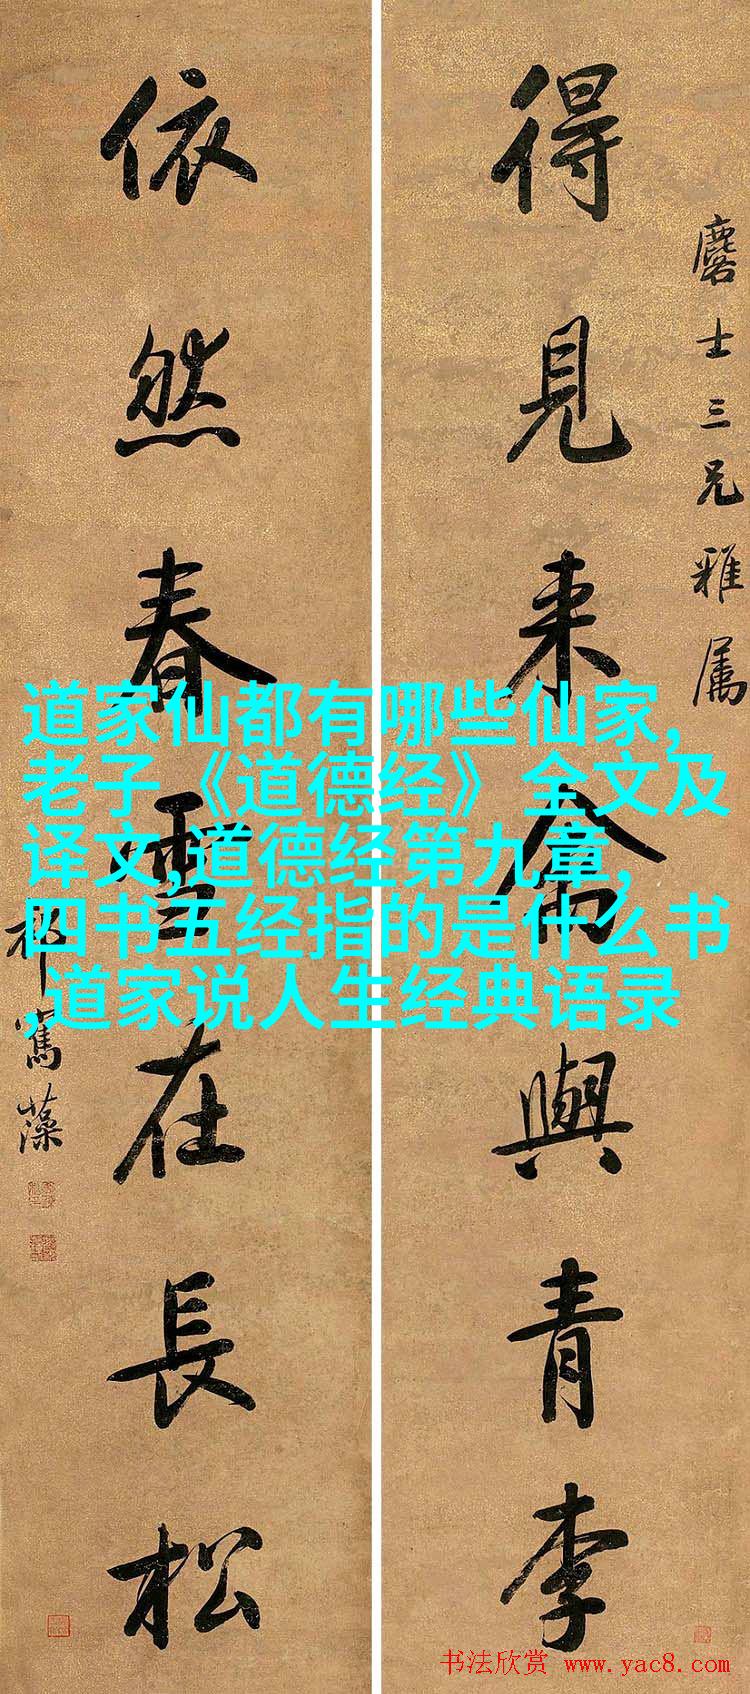 麐士三兄雅属
得見来禽與青李
依然春雪在長松
祁寯藻
道家仙都有哪些仙家,
老子《道德经》全文及
译文,道德经第九章,
四书五经指的是什么书
,道家说人生经典语录
书法欣赏 www.yac8.com